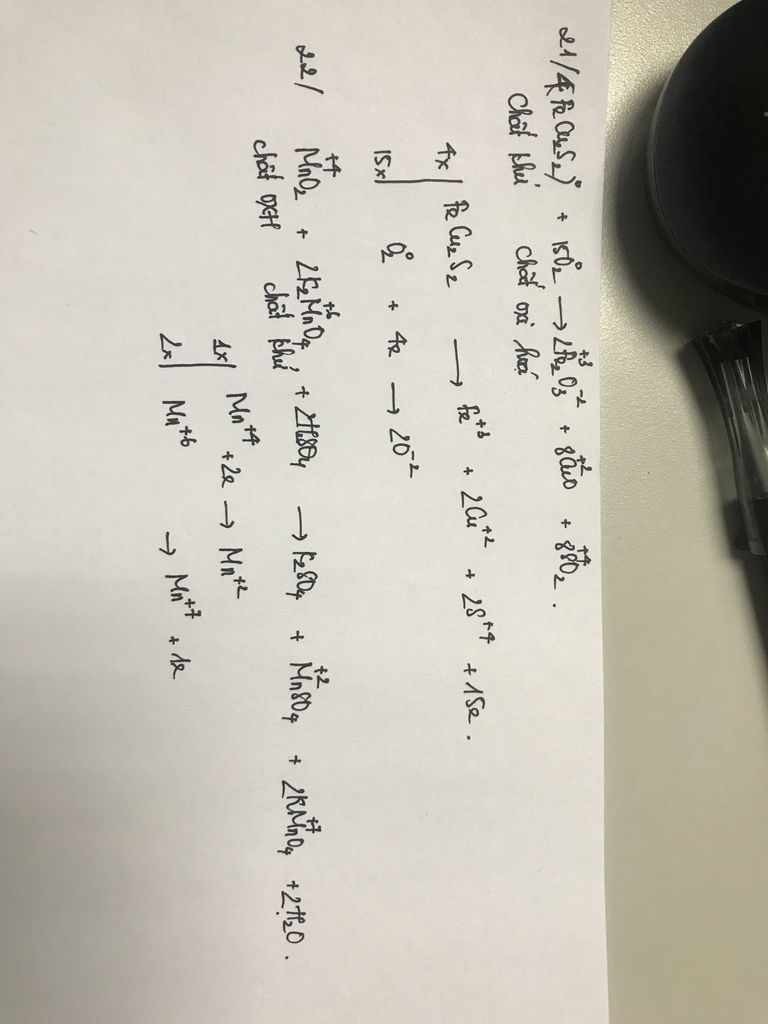 21/ 4(FeCu₂S₂)⁰ + 15O₂⁰ → 2Fe₂⁺³O₃⁻² + 8Cu⁺²O + 8S⁺⁴O₂.
chất khử chất oxi hoá
4x| FeCu₂S₂ → Fe⁺³ + 2Cu⁺² + 2S⁺⁴ + 15e.
15x| O₂⁰ + 4e → 2O⁻²
22/ Mn⁺⁴O₂ + 2K₂Mn⁺⁶O₄ + 2H₂SO₄ → K₂SO₄ + Mn⁺²SO₄ + 2KMn⁺⁷O₄ + 2H₂O.
chất oxh chất khử
1x| Mn⁺⁴ + 2e → Mn⁺²
2x| Mn⁺⁶ → Mn⁺⁷ + 1e